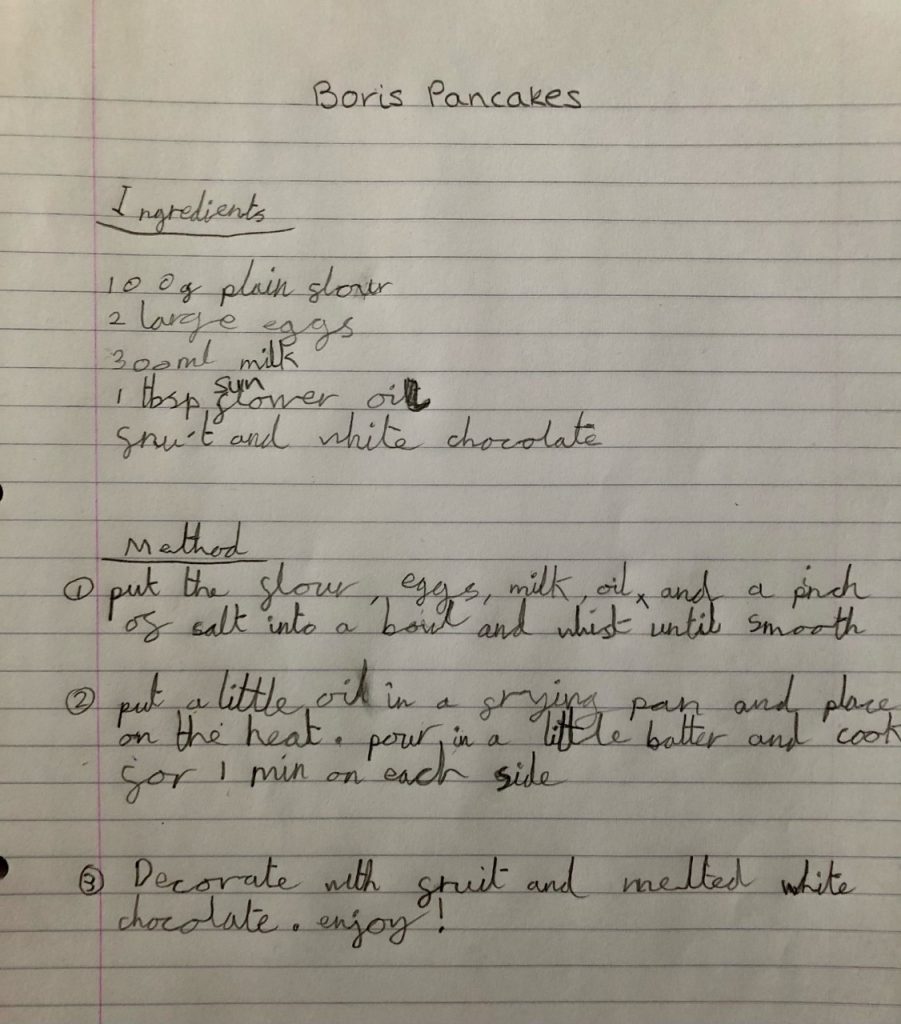 Boris Pancakes
Ingredients
100g plain flour
2 large eggs
300ml milk
1 tbsp sunflower oil
fruit and white chocolate
Method
① put the flour, eggs, milk, oil, and a pinch
of salt into a bowl and whisk until smooth
② put a little oil in a frying pan and place
on the heat. pour in a little batter and cook
for 1 min on each side
③ Decorate with fruit and melted white
chocolate. enjoy!